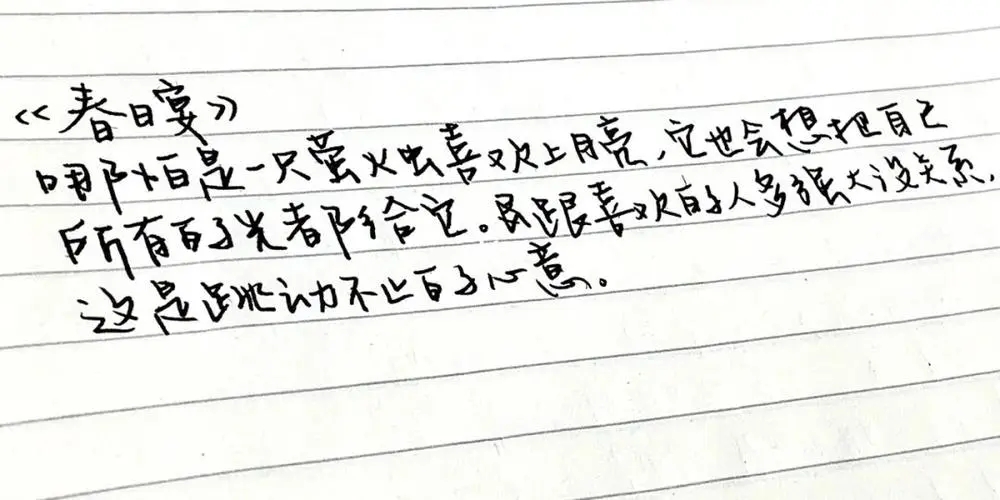 《春日宴》
哪怕是一只萤火虫喜欢上月亮,它也会想把自己
所有的光都给它。跟喜欢的人多强大没关系,
这是跳动不止的心意。